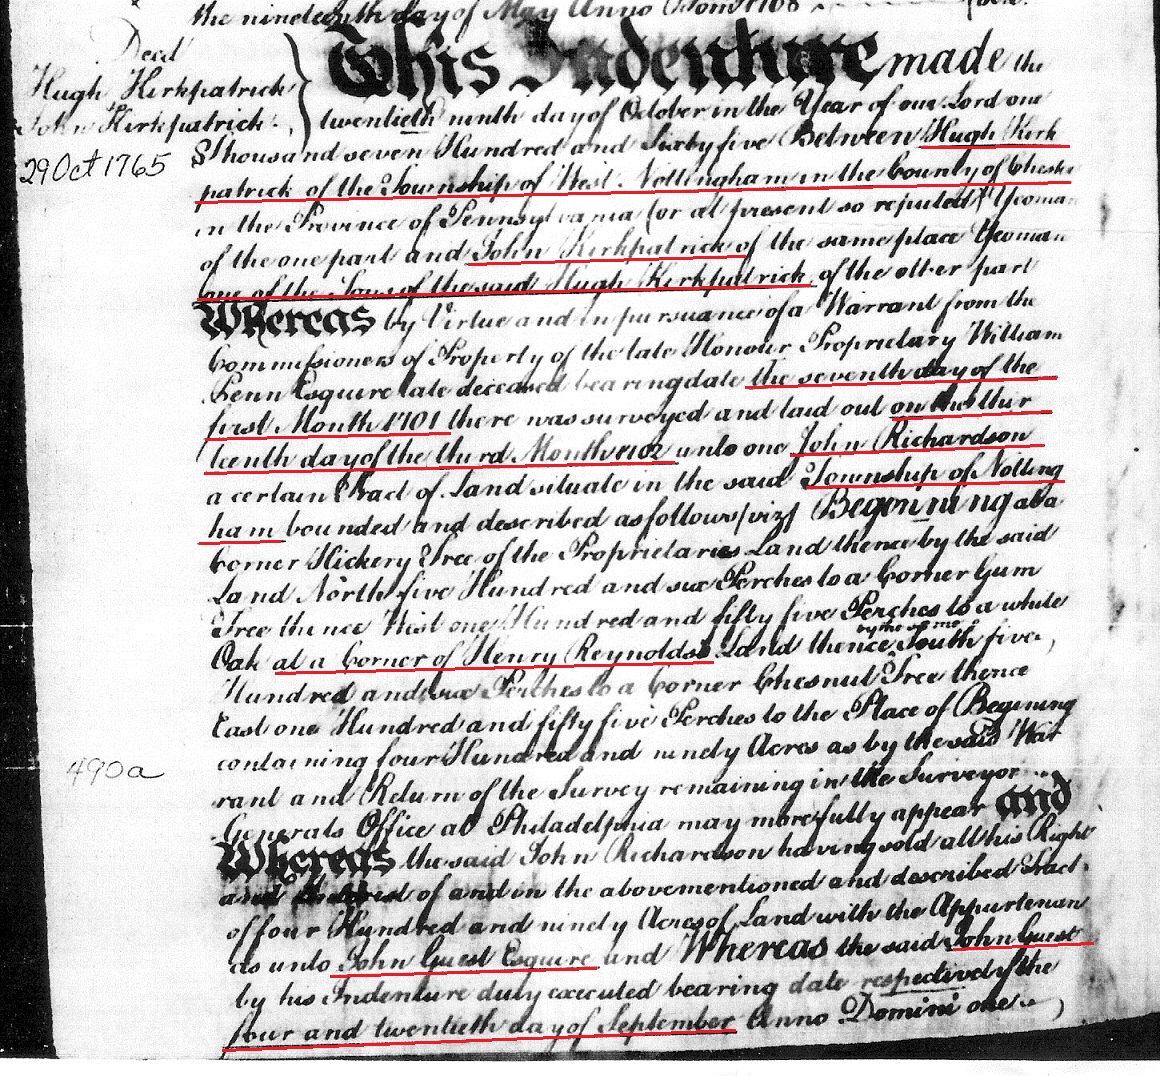 the nineteenth day of May Anno Dom 1768
Deed
Hugh Kirkpatrick
John Kirkpatrick
29 Oct 1765
This Indenture made the
twentieth ninth day of October in the Year of our Lord one
Thousand seven Hundred and Sixty five Between Hugh Kirk
patrick of the Township of West Nottingham in the County of Chester
in the Province of Pennsylvania (or at present so reputed) Yeoman
of the one part and John Kirkpatrick of the same place Yeoman
one of the Sons of the said Hugh Kirkpatrick of the other part
Whereas by Virtue and in pursuance of a Warrant from the
Commissioners of Property of the late Honour Proprietary William
Penn Esquire late deceased bearing date the seventh day of the
first Month 1701 there was surveyed and laid out on the thir
teenth day of the third Month 1702 unto one John Richardson
a certain Tract of Land situate in the said Township of Notting
ham bounded and described as follows (vizt) Begenning at a
Corner Hickery Tree of the Proprietaries Land thence by the said
Land North five Hundred and six Perches to a Corner Gum
Tree thence West one Hundred and fifty five Perches to a white
Oak at a Corner of Henry Reynolds's Land thence by the same South five
Hundred and six Perches to a Corner Chesnut Tree thence
East one Hundred and fifty five Perches to the Place of Begining
490a
containing four Hundred and ninety Acres as by the said War
rant and Return of the Survey remaining in the Surveyor
Generals Office at Philadelphia may more fully appear and
Whereas the said John Richardson having sold all his Right
and of and in the abovementioned and described Tract
of four Hundred and ninety Acres of Land with the Appurtenan
as unto John Guest Esquire and Whereas the said John Guest
by his Indenture duly executed bearing date respectively the
four and twentieth day of September Anno Domini one